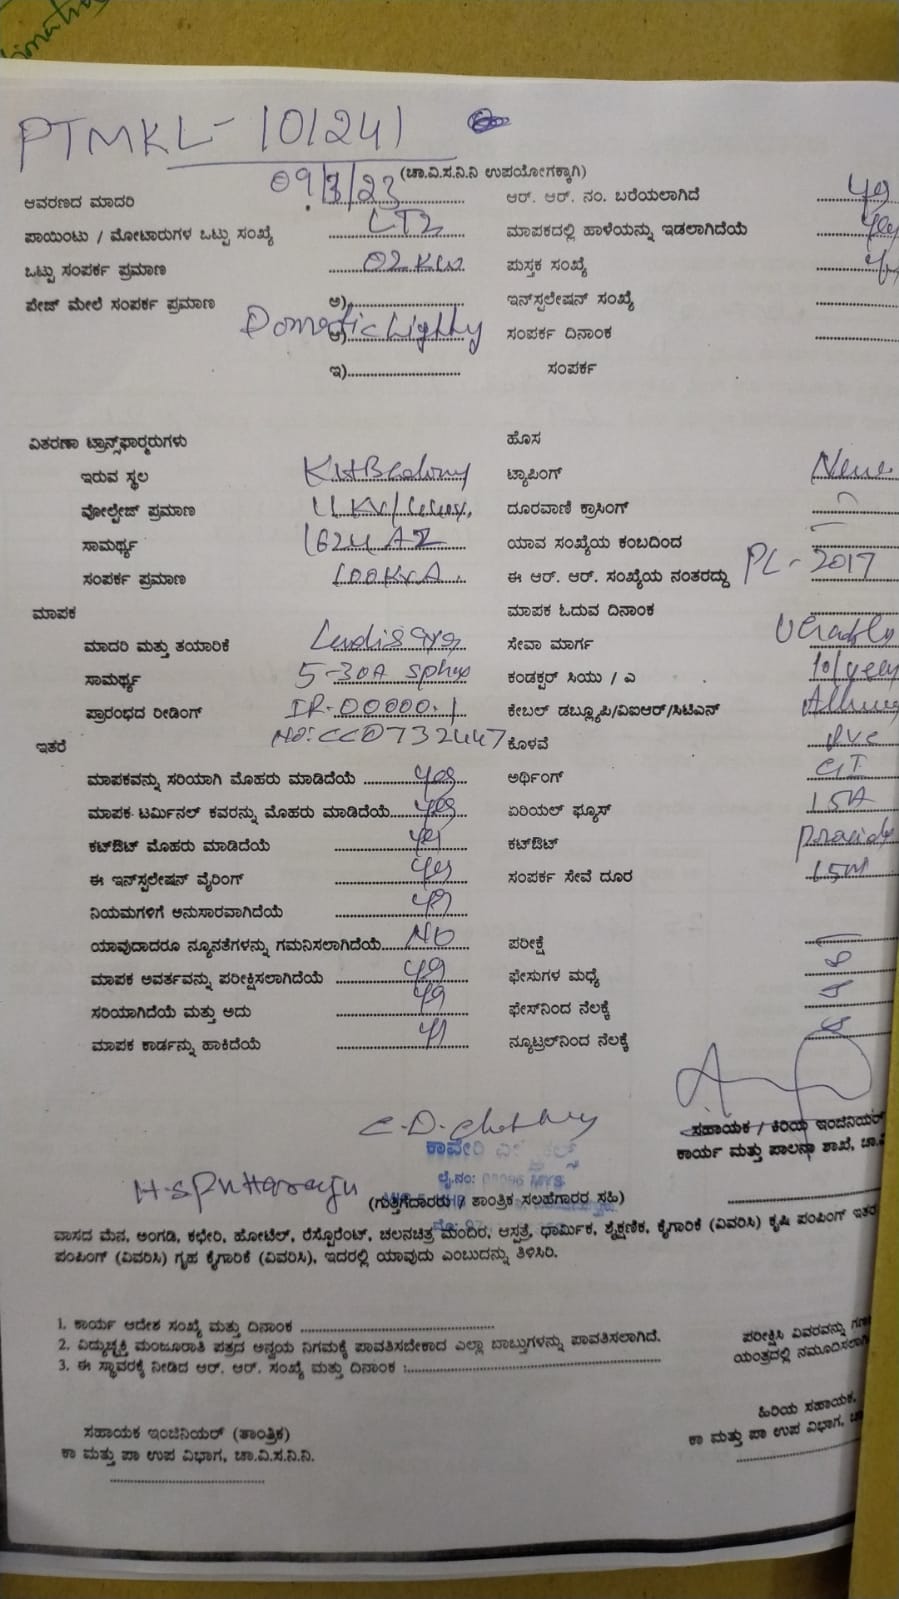 PTMKL-10/241
(ಚಾ.ವಿ.ಸ.ನಿ.ನಿ ಉಪಯೋಗಕ್ಕಾಗಿ)
ಆವರಣದ ಮಾದರಿ ಆರ್. ಆರ್. ನಂ. ಬರೆಯಲಾಗಿದೆ yes
ಪಾಯಿಂಟು / ಮೋಟಾರುಗಳ ಒಟ್ಟು ಸಂಖ್ಯೆ LT2 ಮಾಪಕದಲ್ಲಿ ಹಾಳೆಯನ್ನು ಇಡಲಾಗಿದೆಯೆ yes
ಒಟ್ಟು ಸಂಪರ್ಕ ಪ್ರಮಾಣ 02 KW ಪುಸ್ತಕ ಸಂಖ್ಯೆ
ಪೇಜ್ ಮೇಲೆ ಸಂಪರ್ಕ ಪ್ರಮಾಣ ಅ) ಇನ್‌ಸ್ಟಲೇಷನ್ ಸಂಖ್ಯೆ
ಆ) ಸಂಪರ್ಕ ದಿನಾಂಕ
ಇ) ಸಂಪರ್ಕ
ವಿತರಣಾ ಟ್ರಾನ್ಸ್‌ಫಾರ್ಮರುಗಳು ಹೊಸ
ಇರುವ ಸ್ಥಳ KHB Colony ಟ್ಯಾಪಿಂಗ್
ವೋಲ್ಟೇಜ್ ಪ್ರಮಾಣ 11 KV/ ದೂರವಾಣಿ ಕ್ರಾಸಿಂಗ್
ಸಾಮರ್ಥ್ಯ ಯಾವ ಸಂಖ್ಯೆಯ ಕಂಬದಿಂದ
ಸಂಪರ್ಕ ಪ್ರಮಾಣ 100 KVA ಈ ಆರ್. ಆರ್. ಸಂಖ್ಯೆಯ ನಂತರದ್ದು PL-2017
ಮಾಪಕ ಮಾಪಕ ಓದುವ ದಿನಾಂಕ
ಮಾದರಿ ಮತ್ತು ತಯಾರಿಕೆ ಸೇವಾ ಮಾರ್ಗ
ಸಾಮರ್ಥ್ಯ 5-30A ಕಂಡಕ್ಟರ್ ಸಿಯು / ಎ
ಪ್ರಾರಂಭದ ರೀಡಿಂಗ್ IR-00000.1 ಕೇಬಲ್ ಡಬ್ಲ್ಯೂಪಿ/ವಿಐಆರ್/ಸಿಟಿಎನ್
ಇತರೆ No: CCD732447 ಕೊಳವೆ pvc
ಮಾಪಕವನ್ನು ಸರಿಯಾಗಿ ಮೊಹರು ಮಾಡಿದೆಯೆ yes ಅರ್ಥಿಂಗ್ GI
ಮಾಪಕ ಟರ್ಮಿನಲ್ ಕವರನ್ನು ಮೊಹರು ಮಾಡಿದೆಯೆ yes ಏರಿಯಲ್ ಫ್ಯೂಸ್ 15A
ಕಟ್‌ಔಟ್ ಮೊಹರು ಮಾಡಿದೆಯೆ yes ಕಟ್‌ಔಟ್
ಈ ಇನ್‌ಸ್ಟಲೇಷನ್ ವೈರಿಂಗ್ yes ಸಂಪರ್ಕ ಸೇವೆ ದೂರ 15M
ನಿಯಮಗಳಿಗೆ ಅನುಸಾರವಾಗಿದೆಯೆ yes
ಯಾವುದಾದರೂ ನ್ಯೂನತೆಗಳನ್ನು ಗಮನಿಸಲಾಗಿದೆಯೆ No ಪರೀಕ್ಷೆ
ಮಾಪಕ ಅವರ್ತವನ್ನು ಪರೀಕ್ಷಿಸಲಾಗಿದೆಯೆ yes ಫೇಸುಗಳ ಮಧ್ಯೆ
ಸರಿಯಾಗಿದೆಯೆ ಮತ್ತು ಅದು yes ಫೇಸ್‌ನಿಂದ ನೆಲಕ್ಕೆ
ಮಾಪಕ ಕಾರ್ಡನ್ನು ಹಾಕಿದೆಯೆ ನ್ಯೂಟ್ರಲ್‌ನಿಂದ ನೆಲಕ್ಕೆ
ಸಹಾಯಕ / ಕಿರಿಯ ಇಂಜಿನಿಯರ್
ಕಾವೇರಿ
ಕಾರ್ಯ ಮತ್ತು ಪಾಲನಾ ಶಾಖೆ,
ಲೈ.ನಂ:
(ಗುತ್ತಿಗೆದಾರರು / ತಾಂತ್ರಿಕ ಸಲಹೆಗಾರರ ಸಹಿ)
ವಾಸದ ಮನೆ, ಅಂಗಡಿ, ಕಛೇರಿ, ಹೋಟೆಲ್, ರೆಸ್ಟೊರೆಂಟ್, ಚಲನಚಿತ್ರ ಮಂದಿರ, ಆಸ್ಪತ್ರೆ, ಧಾರ್ಮಿಕ, ಶೈಕ್ಷಣಿಕ, ಕೈಗಾರಿಕೆ (ವಿವರಿಸಿ) ಕೃಷಿ ಪಂಪಿಂಗ್ ಇತರ
ಪಂಪಿಂಗ್ (ವಿವರಿಸಿ) ಗೃಹ ಕೈಗಾರಿಕೆ (ವಿವರಿಸಿ), ಇದರಲ್ಲಿ ಯಾವುದು ಎಂಬುದನ್ನು ತಿಳಿಸಿರಿ.
1. ಕಾರ್ಯ ಆದೇಶ ಸಂಖ್ಯೆ ಮತ್ತು ದಿನಾಂಕ
2. ವಿದ್ಯುಚ್ಛಕ್ತಿ ಮಂಜೂರಾತಿ ಪತ್ರದ ಅನ್ವಯ ನಿಗಮಕ್ಕೆ ಪಾವತಿಸಬೇಕಾದ ಎಲ್ಲಾ ಬಾಬ್ತುಗಳನ್ನು ಪಾವತಿಸಲಾಗಿದೆ. ಪರೀಕ್ಷಿಸಿ ವಿವರವನ್ನು
3. ಈ ಸ್ಥಾವರಕ್ಕೆ ನೀಡಿದ ಆರ್. ಆರ್. ಸಂಖ್ಯೆ ಮತ್ತು ದಿನಾಂಕ : ಯಂತ್ರದಲ್ಲಿ
ಹಿರಿಯ ಸಹಾಯಕ,
ಸಹಾಯಕ ಇಂಜಿನಿಯರ್ (ತಾಂತ್ರಿಕ) ಕಾ ಮತ್ತು ಪಾ ಉಪ ವಿಭಾಗ,
ಕಾ ಮತ್ತು ಪಾ ಉಪ ವಿಭಾಗ, ಚಾ.ವಿ.ಸ.ನಿ.ನಿ.